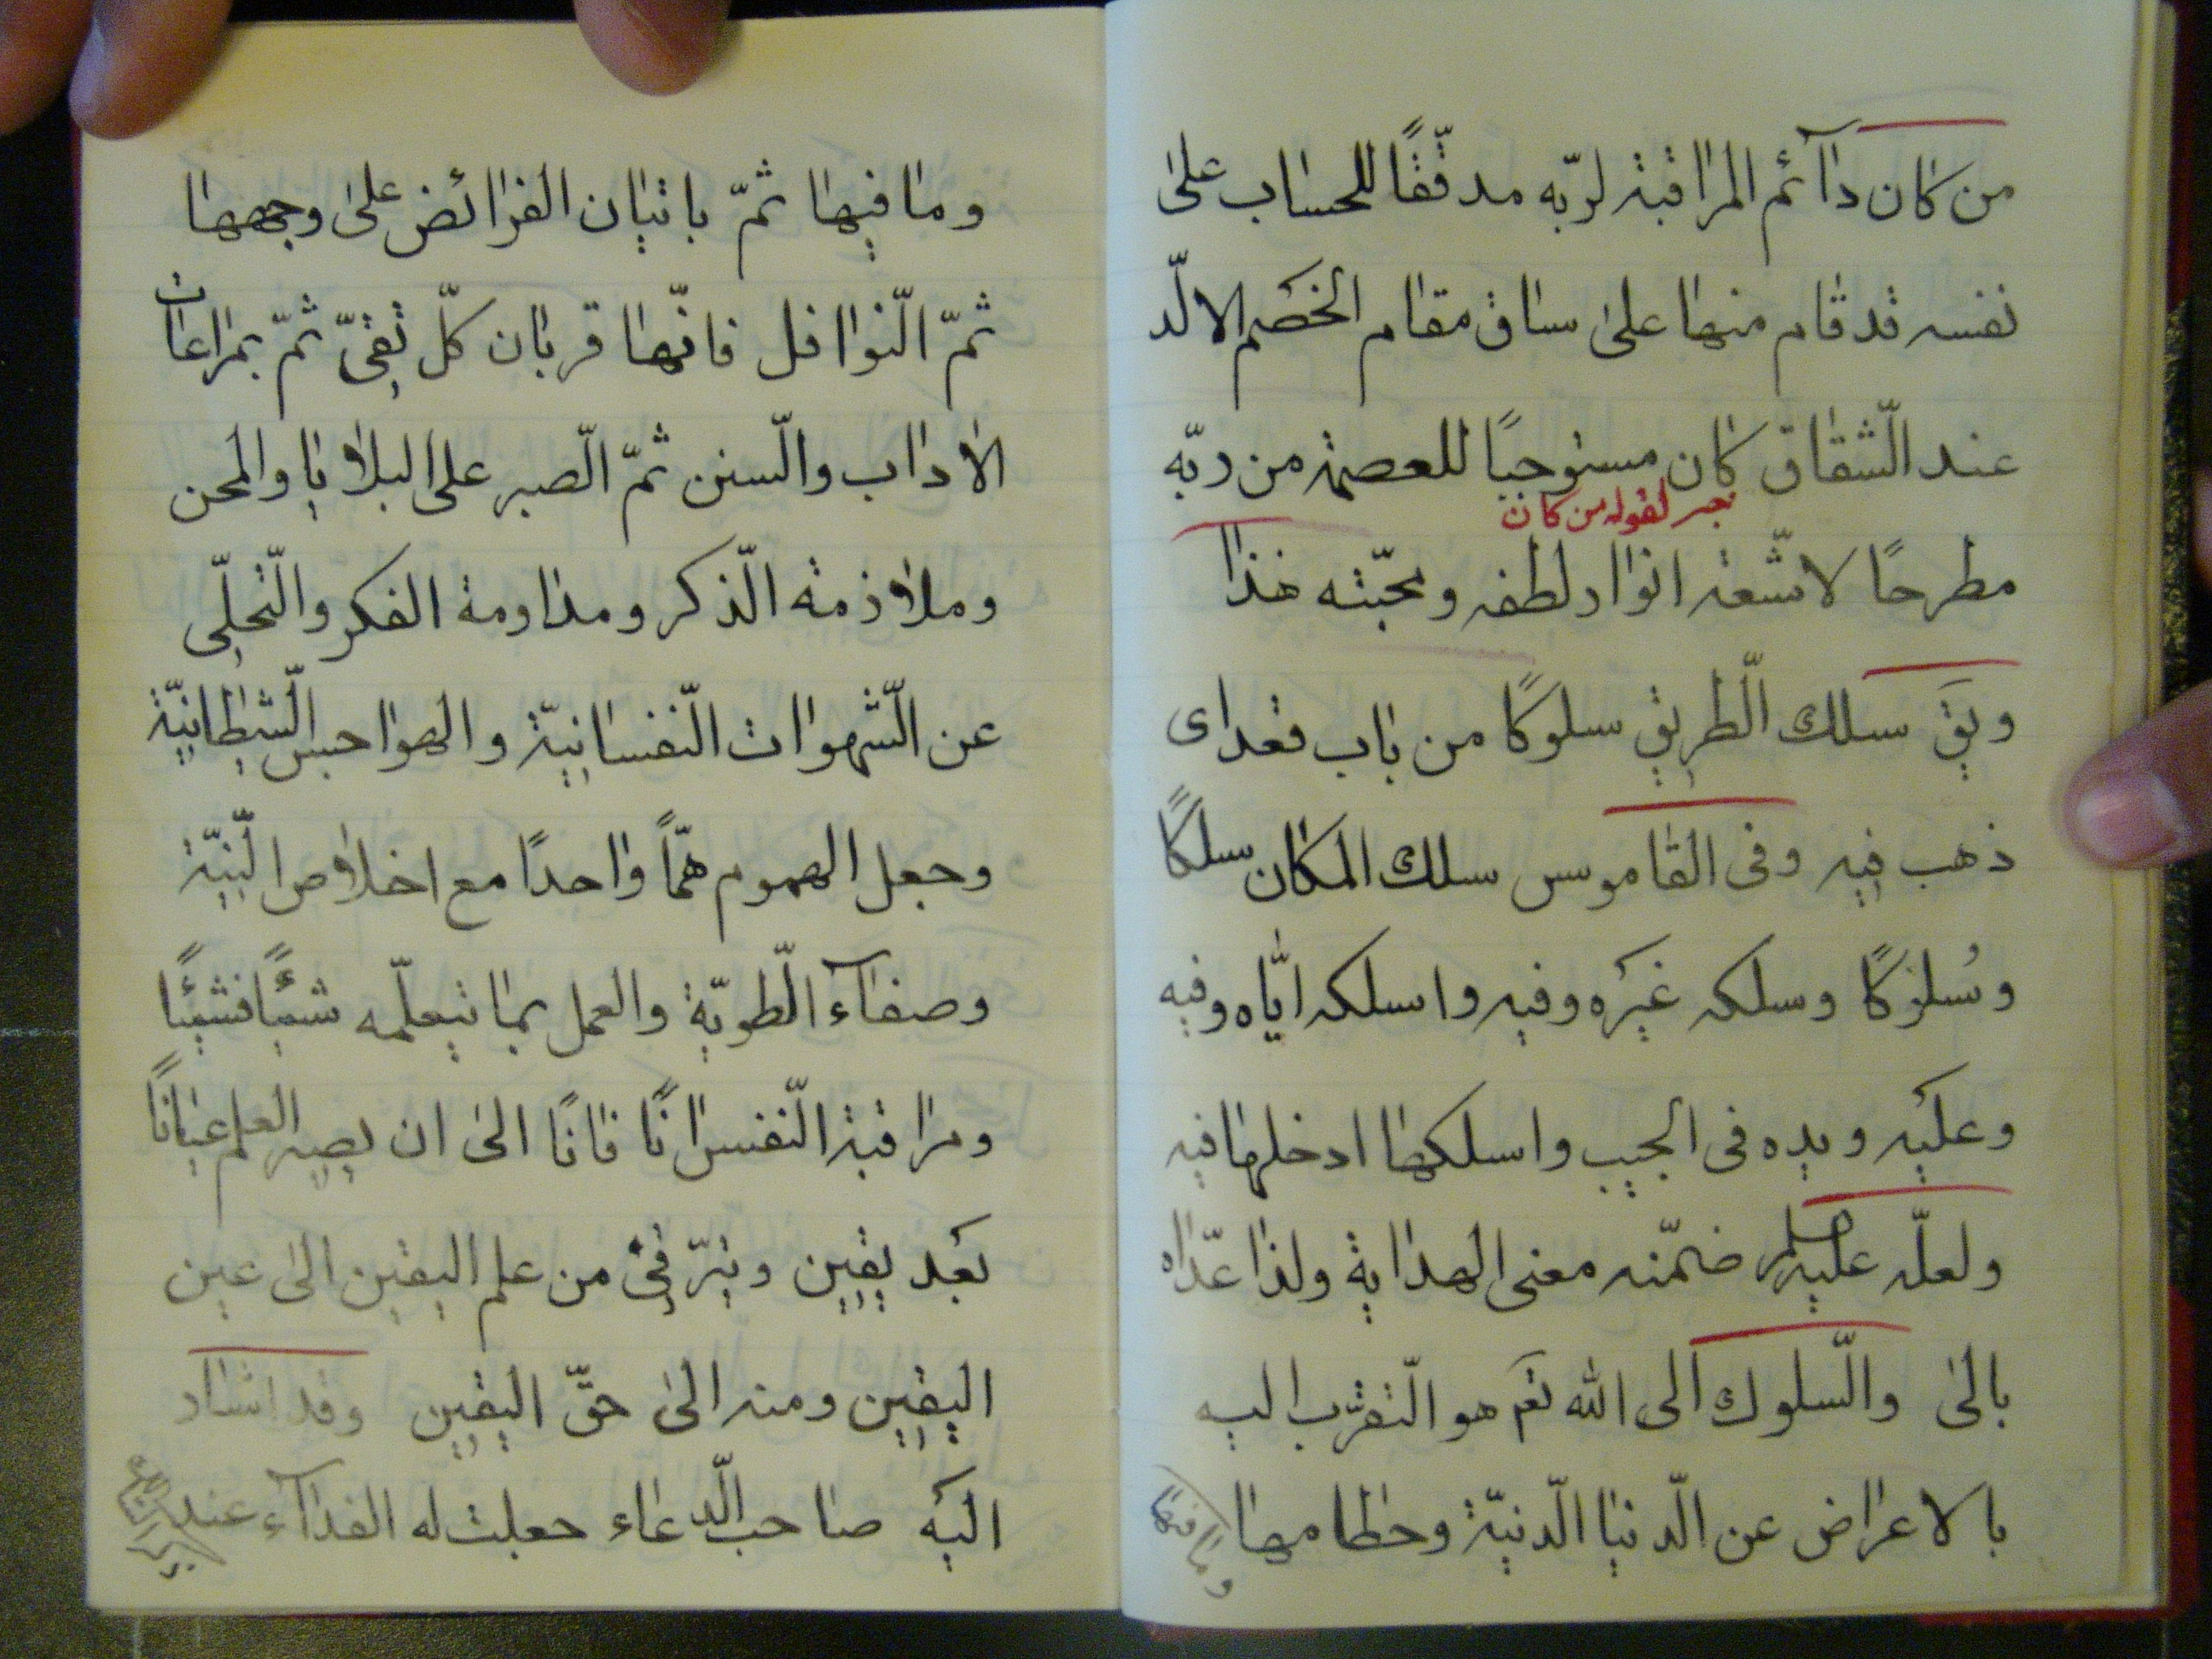 من كان دآئم المراقبة لربّه مدقّقًا للحساب على
نفسه قد قام منها على ساق مقام الخصم الالّد
عند الّشقاق كان مستوجبًا للعصمة من ربّه
خبر لقوله من كان
مطرحًا لاشّعة انوار لطفه ومحبّته هذا
ويقَ سلك الّطريق سلوكًا من باب قعد اى
ذهب فيه وفى القاموس سلك المكان سلكًا
وسُلوكًا وسلكه غيَره وفيه واسلكه ايّاه وفيه
وعليَه ويده فى الجيب واسلكها ادخلها فيه
ولعلّه عليه ضمّنه معنى الهداية ولذا عدّاه
بالى والّسلوك الى الله تعَ هو الّتقرّب اليه
بالاعراض عن الّدنيا الّدنيّة وحطامها
وما فيها
وما فيها ثمّ باتيان الفرائض على وجهها
ثمّ الّنوافل فانّها قربان كلّ تقىّ ثمّ بمراعات
الاداب والّسنن ثمّ الّصبر على البلايا والمحن
وملازمة الّذكر ومداومة الفكر والّتخلّى
عن الّشهوات الّنفسانيّة والهواجس الّشيطانيّة
وجعل الهموم همّاً واحدًا مع اخلاص الّنيّة
وصفآء الّطويّة والعمل بما يتعلّمه شيئًا فشيئًا
ومراقبة الّنفس انًا فانًا الى ان يصير العلم عيانًا
بعَد يقين ويترّقى من علم اليقين الى عين
اليقين ومنه الى حقّ اليقين وقد اشار
اليَه صاحب الّدعاء جعلت له الفدآء عند